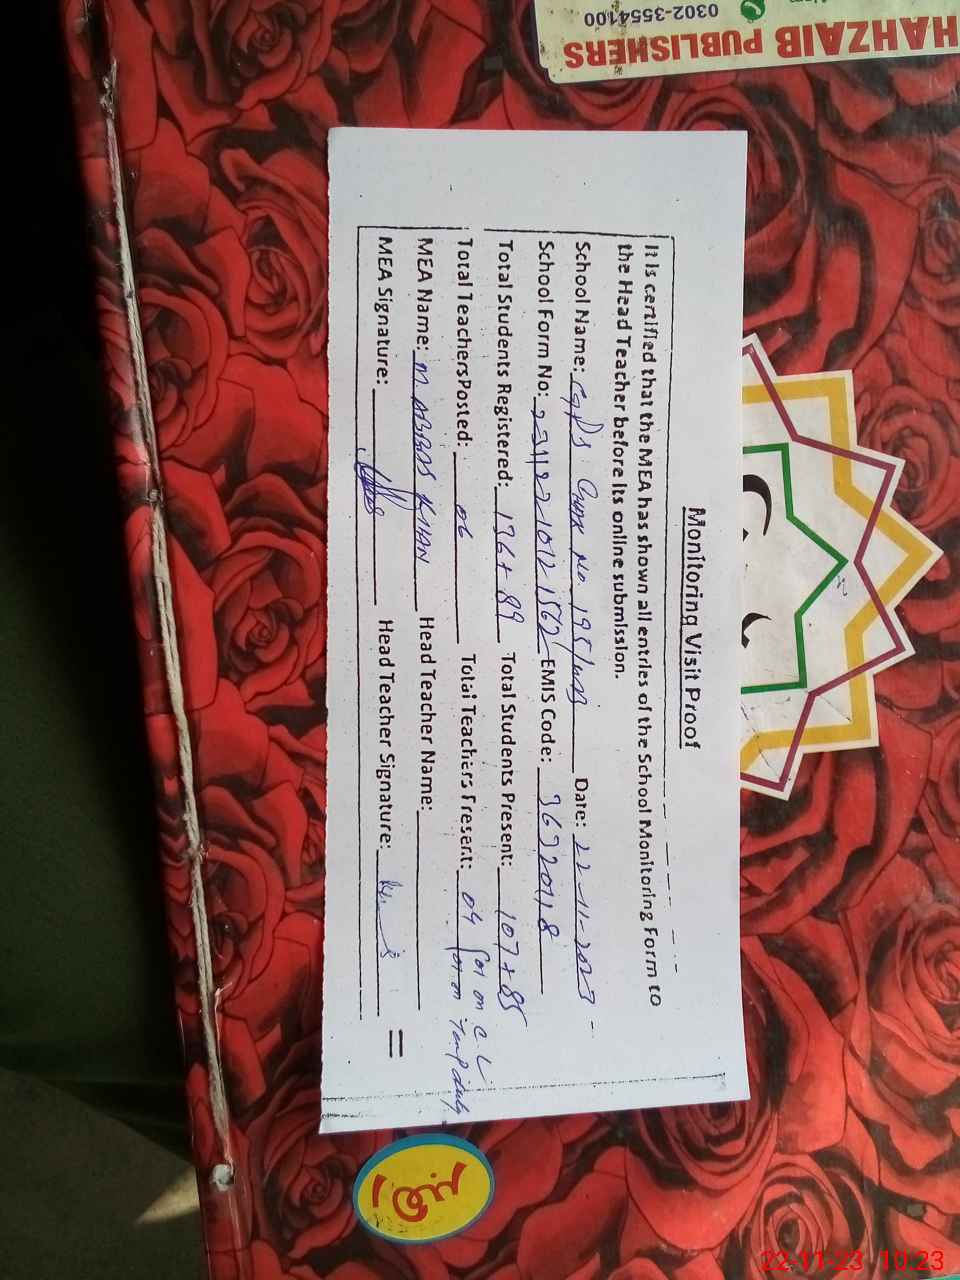 HAHZAIB PUBLISHERS
0302-3554100
Monitoring Visit Proof
It is certified that the MEA has shown all entries of the School Monitoring Form to
the Head Teacher before its online submission.
School Name: Chak No 195/WB Date: 22-11-2023
School Form No: EMIS Code: 36320118
Total Students Registered: 136+89 Total Students Present: 107+85
Total Teachers Posted: 06 Total Teachers Present: 04 01 on C.L
01 on Temp duty
MEA Name: M. ABBAS KHAN Head Teacher Name:
MEA Signature: Head Teacher Signature:
22-11-23 10:23